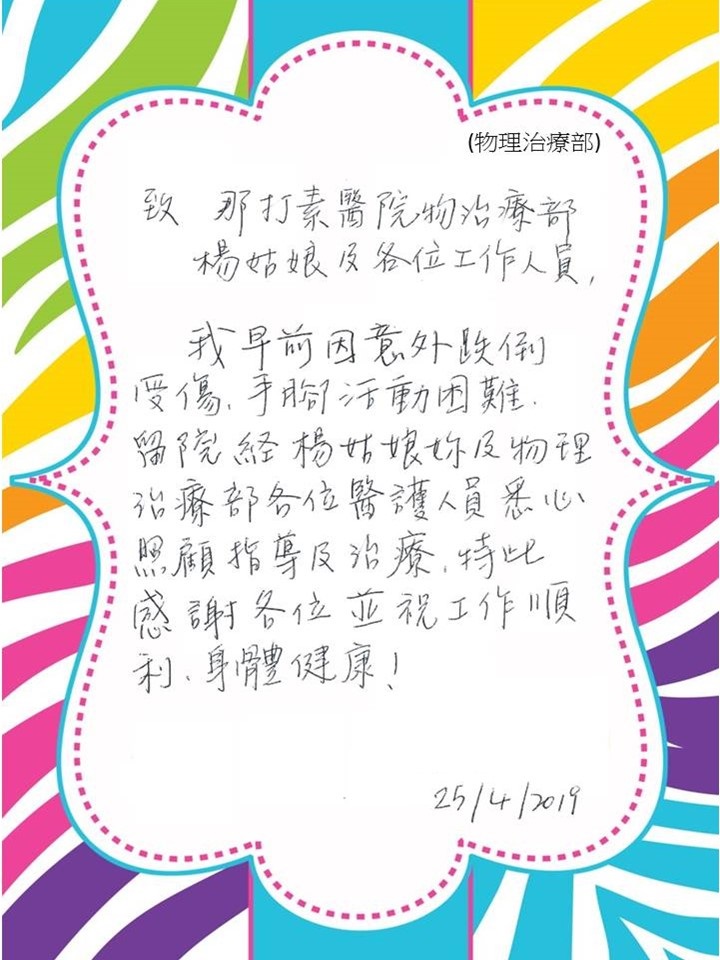 (物理治療部)
致 那打素醫院物治療部
楊姑娘及各位工作人員,
我早前因意外跌倒
受傷、手腳活動困難.
留院經楊姑娘妳及物理
治療部各位醫護人員悉心
照顧指導及治療、特此
感謝各位並祝工作順
利、身體健康!
25/4/2019